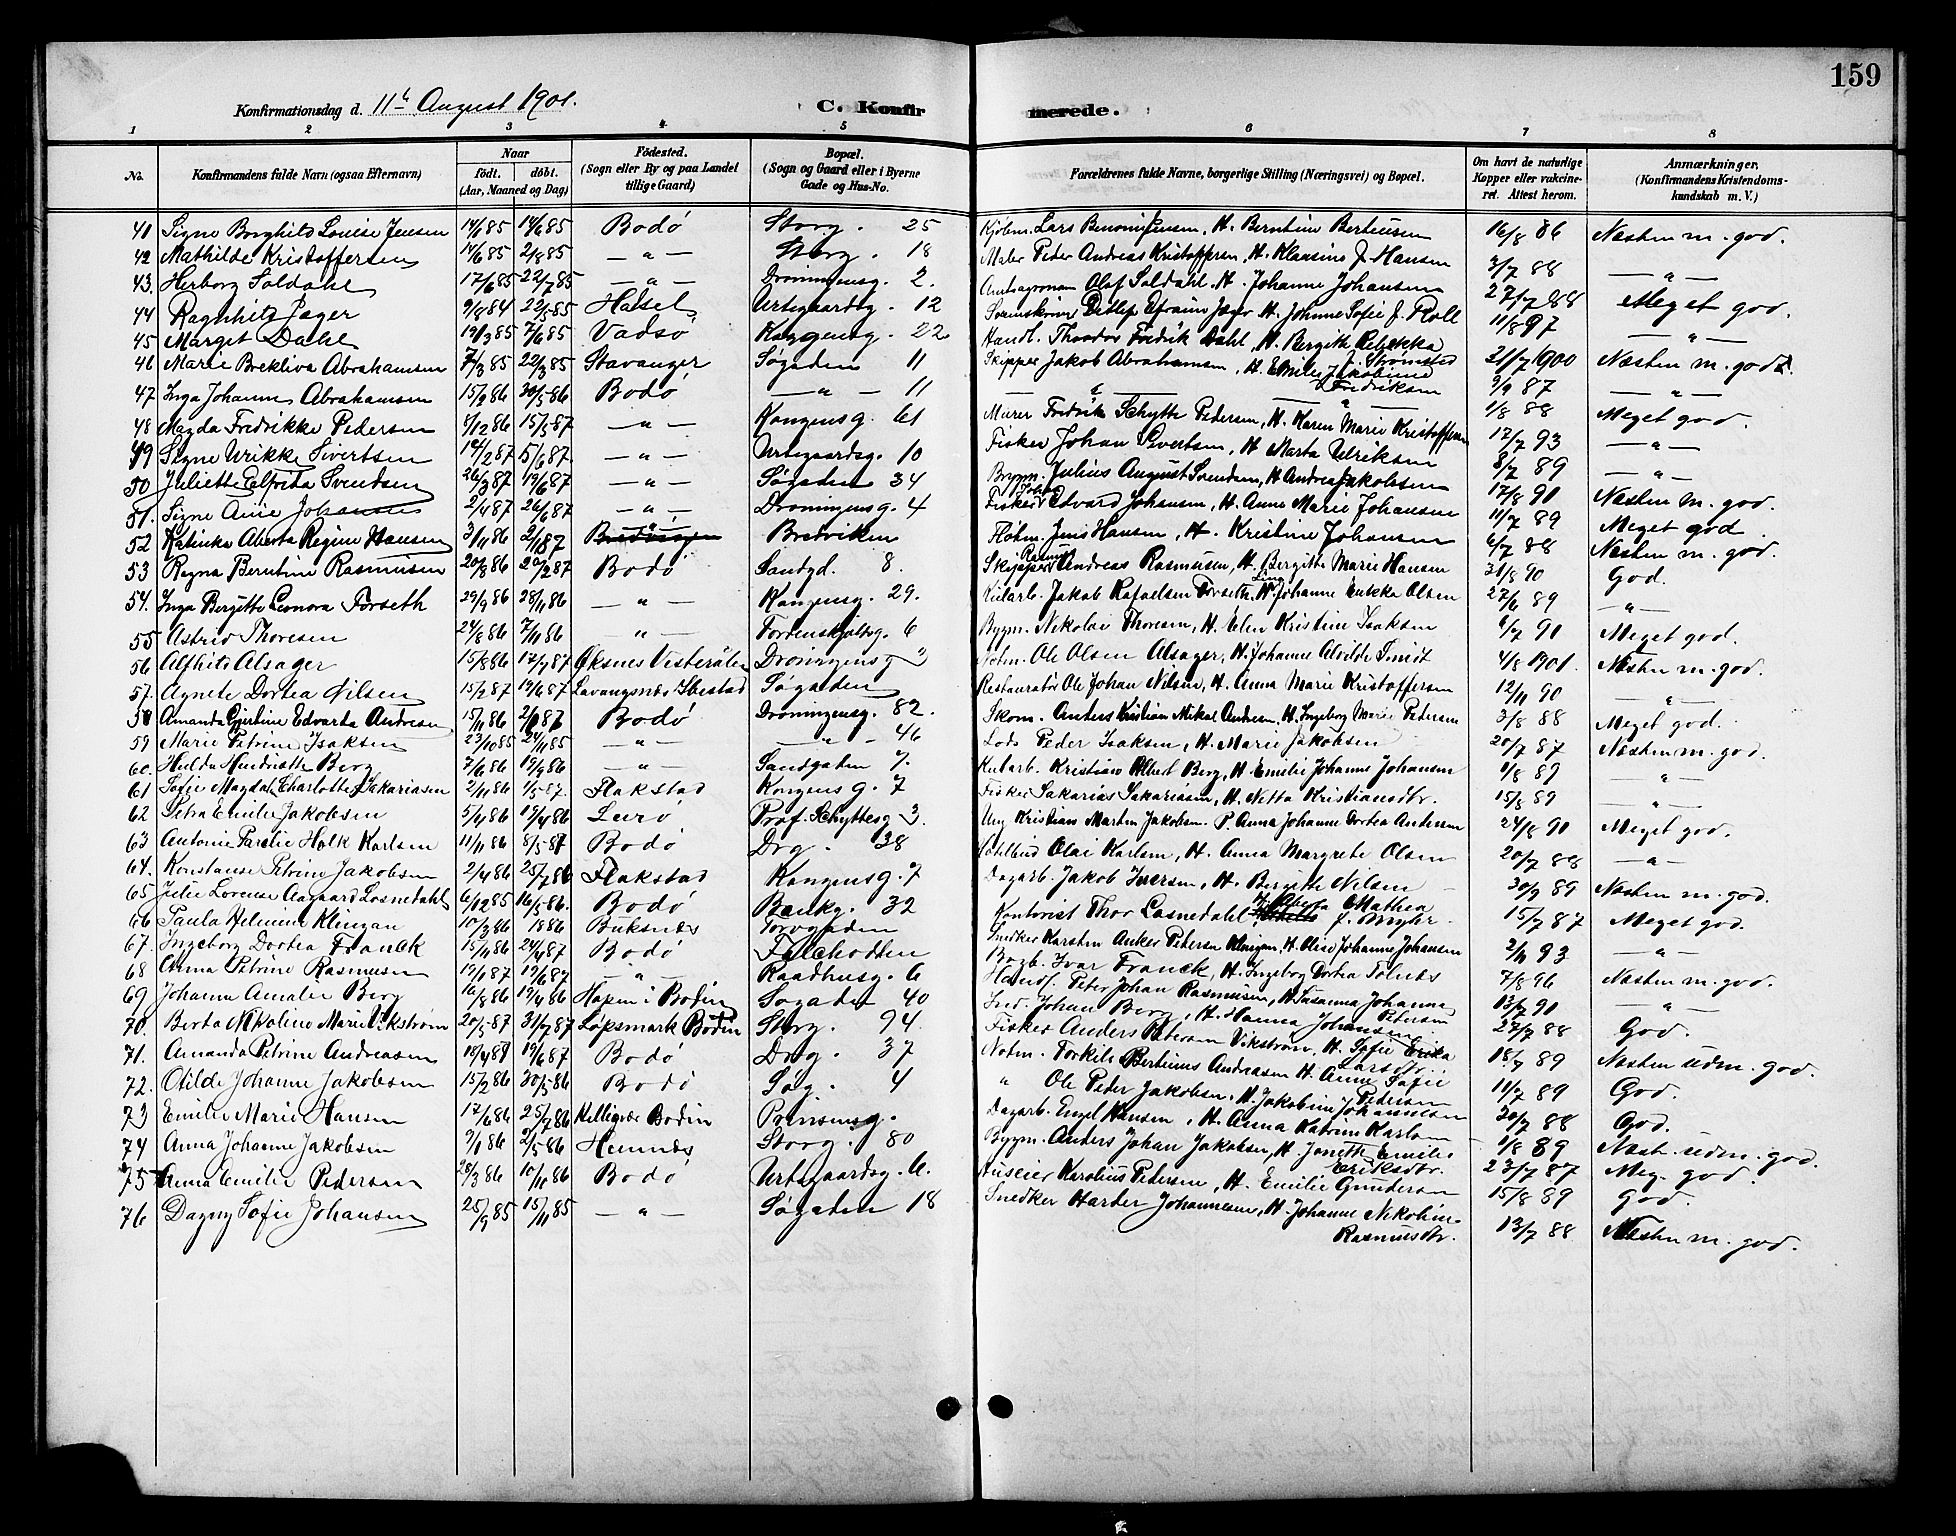 159
Konfirmationsdag d. 11te August 1901. C. Konfirmerede.
1 2 3 4 5 6 7 8
No. Konfirmandens fulde Navn (ogsaa Efternavn) Naar født. døbt. (Aar, Maaned og Dag) Fødested. (Sogn eller By og paa Landet tillige Gaard) Bopæl. (Sogn og Gaard eller i Byerne Gade og Hus-No. Forældrenes fulde Navne, borgerlige Stilling (Næringsvei) og Bopæl. Om havt de naturlige Kopper eller vakcineret. Attest herom. Anmærkninger, (Konfirmandens Kristendomskundskab m. V.)
41 Signe Borghild Louise Jensen 14/6 85 19/6 85 Bodø Storg. 25 Kjøbm. Lars Benoni Jensen, H. Berntine Berteusen 16/8 86 Næsten m. god.
42 Mathilde Kristoffersen 14/6 85 2/8 85 — " — Storg. 18 Maler Peder Andreas Kristoffersen, H. Klausine J. Hansen 3/7 88 — " —
43. Herborg Soldahl 17/6 85 22/7 85 — " — Dronningensg. 2. Amtsagronom Olaf Soldahl, H. Johanne Johansen 27/7 88 Meget god.
44 Ragnhild Jæger 9/8 84 22/5 85 Hassel Urtegaardsg. 12 Detlef Efraim Jæger H. Johnne Sofie J. Roll 11/8 97 — " —
45 Marget Dahl 19/3 85 7/6 85 Vadsø Kongensg. 22 Handl. Theodor Fredrik Dahl, H. Bergith Rebekka J. Strømsted 21/7 1900 Næsten m. god.
46 Marie Brekliva Abrahamsen 7/3 85 22/3 85 Stavanger Søgaden 11 Skipper Jakob Abrahamsen, H. Emilie Jakobine Fredriksen 9/9 87 — " —
47 Inga Johanne Abrahamsen 15/9 86 30/5 86 Bodø — " — 11 — " — 1/8 88 Meget god.
48 Magda Fredrikke Pedersen 4/12 86 15/5 87 — " — Kongensg. 61 Murer Fredrik Schytte Pedersen, H. Karen Marie Kristoffersen 12/7 93 — " —
49 Signe Urikke Sivertsen 14/2 87 5/6 87 — " — Urtegaardsg. 10 Fisker Johan Sivertsen, H. Marta Ulriksen 8/7 89 — " —
50 Juliette Elfrida Svendsen 26/3 87 19/6 87 — " — Søgaden 34 Bygm. Julius August Svendsen, H. Andrea Jakobsen 17/8 90 Næsten m. god.
51. Signe Anie Johansen 2/4 87 26/6 87 — " — Dronningensg. 4 Fisker Edvard Johansen, H. Anne Marie Johansen 11/7 89 Meget god
52 Katinka Alberta Regine Hansen 3/11 86 2/1 87 Bredviken Jens Hansen, H. Kristine Johansen 6/7 88 Næsten m. god.
53 Ragna Berntine Rasmusen 20/8 86 20/2 87 Bodø Sandgd. 8. Skipper Rasmus Andreas Rasmusen, H. Bergitte Marie Hansen 31/8 90 God.
54. Inga Bergitte Leonora Forseth 29/9 86 28/11 86 — " — Kongensg. 29. Kularb. Jakob Rafaelsen Forseth, H. Johanne Olsen 27/6 89 — " —
55 Astrid Thoresen 24/8 86 7/11 86 " — Tordenskjoldsg. 6 Bygm. Nikolai Thoresen, H. Elen Kristine Isaksen 6/7 90 Meget god.
56 Alfhild Alsager 15/8 86 17/7 87 Øksnes Vesterålen Dronningensg. Notm. Ole Olsen Alsager, H. Johanne Alvilde Smidt 4/8 1901. Næsten m. god.
57. Agnete Dortea Nilsen 15/2 87 19/6 87 Lavangsnes Ibestad Søgaden Restauratør Ole Johan Nilsen, H. Anna Marie Kristoffersen 12/11 90 — " —
58 Amanda Gjertine Edvarda Andresen 15/11 86 87 Bodø Dronningensg. 82. Skom. Anders Kristian Mikal Andresen, H. Ingeborg Marie Pedersen 3/8 88 Meget god.
59 Marie Petrine Isaksen 23/10 85 24/11 85 — " — — " — 46 Lods Peder Isaksen, H. Marie Jakobsen 20/7 87 Næsten m. god.
60. Hulda Henriette Berg 7/6 86 19/9 86 — " — Sandgaden 7. Kularb. Kristian Albert Berg, H. Emilie Johanne Johansen 1/8 89 — " —
61 Sofie Magdal. Charlotte Sakariasen 2/11 86 1/5 87. Flakstad Kongensg. 7 Fisker Sakarias Sakariasen, H. Netta Kristiansdtr. 15/8 89 — " —
62 Petra Emilie Jakobsen 5/4 86 19/4 86 Lurø Prof. Schyttesg 3. Ung. Kristian Martin Jakobsen. P. Anna Johanne Dortea Andersen 24/8 90 Meget god.
63 Antonie Parelie Holk Karlsen 11/11 86 8/5 87 Bodø Drg. 38 Olai Karlsen, H. Anna Margrete Olsen 20/7 88 — " —
64. Konstanse Petrine Jakobsen 2/4 86 25/7 86 Flakstad Kongensg. 7 Dagarb. Jakob Iversen, H. Bergitte Nilsen 30/9 89 Næsten m. god.
65 Julie Lorense Aagaard Losnedahl 6/12 85 16/5 86. Bodø Bankg. 32 Kontorist Thor Losnedahl Mathea f. Myhr. 15/7 87 Meget god.
66 Paula Helmine Klingan 10/3 86 1886 Buksnes Torvgaden Snedker Karsten Anker Petersen Klingan, H. Olise Johanne Johansen 2/11 93 — " —
67. Ingeborg Dortea Franck 15/11 86 24/4 87 Bodø Falchodten Bogb. Ivar Franck, H. Ingeborg Dortea Tolnæs 7/8 96 Næsten m. god.
68 Anna Petrine Rasmusen 19/1 87 19/6 87 — " — Raadhusg. 6 Handl. Peter Johan Rasmusen, H. Susanna Johanna Petersen 13/7 90 — " —
69 Johanna Amalie Berg 16/8 86 19/4 86 Hopen i Bodin Søgaden 40 Snd. Johan Berg, H. Hanna Johansen 27/7 88 God.
70. Berta Nikoline Marie Vikstrøm 20/5 87 31/7 87 Løpsmark Bodin Storg. 94. Fisker Anders Petersen Vikstrøm, H. Sofie Erika Larsdtr. 18/7 89 Næsten udm. god.
71. Amanda Petrine Andreasen 18/4 87 19/6 87 Bodø Drg. 37 Notm. Torkild Bertinus Andreasen H. Anne Sofie Pedersen 11/7 89 God.
72. Otilde Johanne Jakobsen 15/2 86 30/5 86 Bodø Søg. 4 " Ole Peder Jakobsen, H. Jakobine Johannesen 30/7 88 God.
73 Emilie Marie Hansen 17/6 86 25/7 86 Kelligvær Bodin Prinsensg. Dagarb. Engel Hansen, H. Anna Katrine Karlsen 1/8 89 Næst. udm. god.
74 Anna Johanne Jakobsen 9/1 86 2/5 86 Hemnæs Storg. 80 Bygm. Anders Johan Jakobsen, H. Jonette Emilie Eriksdtr. 23/7 87 Meg. god.
75 Anna Emilie Pedersen 28/3 86 10/11 86 Bodø Urtegaardsg. 6. Huseier Karolius Pedersen, H. Emilie Gundersen 15/8 89 God.
76 Dagny Sofie Johansen 25/9 85 15/11 85 — " — Søgaden 18 Snedker Harder Johannesen, H. Johanne Nikoline Rasmusdtr. 13/7 88 Næsten m. god.